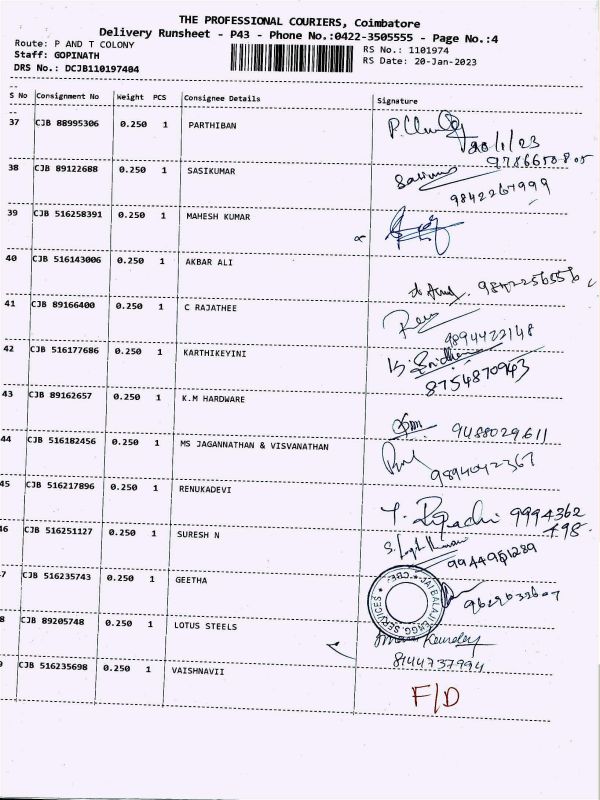 THE PROFESSIONAL COURIERS, Coimbatore
Delivery Runsheet - P43 - Phone No.:0422-3505555 - Page No.:4
Route: P AND T COLONY
Staff: GOPINATH
DRS No.: DCJB110197404
RS No.: 1101974
RS Date: 20-Jan-2023
S No Consignment No Weight PCS Consignee Details Signature
37 CJB 88995306 0.250 1 PARTHIBAN
20/1/23
9786650805
38 CJB 89122688 0.250 1 SASIKUMAR
9842264999
39 CJB 516258391 0.250 1 MAHESH KUMAR
40 CJB 516143006 0.250 1 AKBAR ALI
9842256556
41 CJB 89166400 0.250 1 C RAJATHEE
9894422148
42 CJB 516177686 0.250 1 KARTHIKEYINI
K. Sridharan
8754870943
43 CJB 89162657 0.250 1 K.M HARDWARE
9488029611
44 CJB 516182456 0.250 1 MS JAGANNATHAN & VISVANATHAN
9894042367
45 CJB 516217896 0.250 1 RENUKADEVI
9994362
498.
46 CJB 516251127 0.250 1 SURESH N
9944961289
47 CJB 516235743 0.250 1 GEETHA
JAI BALAJI ENGG. SERVICES ★ CBE ★
48 CJB 89205748 0.250 1 LOTUS STEELS
8144737994
49 CJB 516235698 0.250 1 VAISHNAVII
F/D